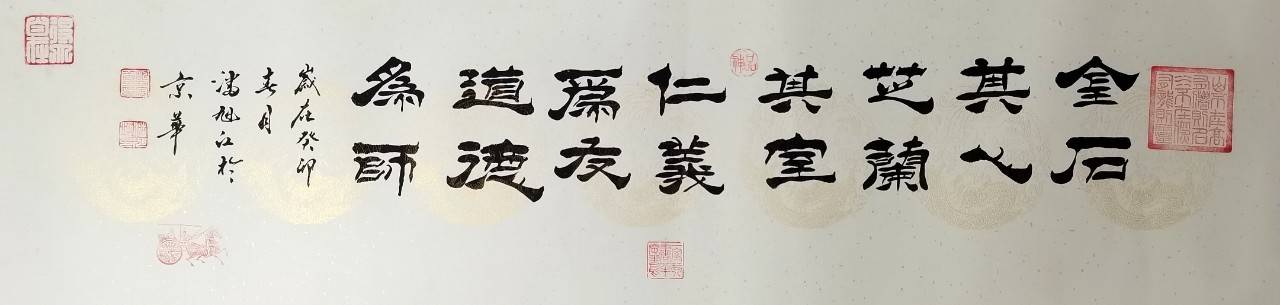 金石
其心
芝蘭
其室
仁義
為友
道德
為師
歲在癸卯
春月
潘旭江於
京華